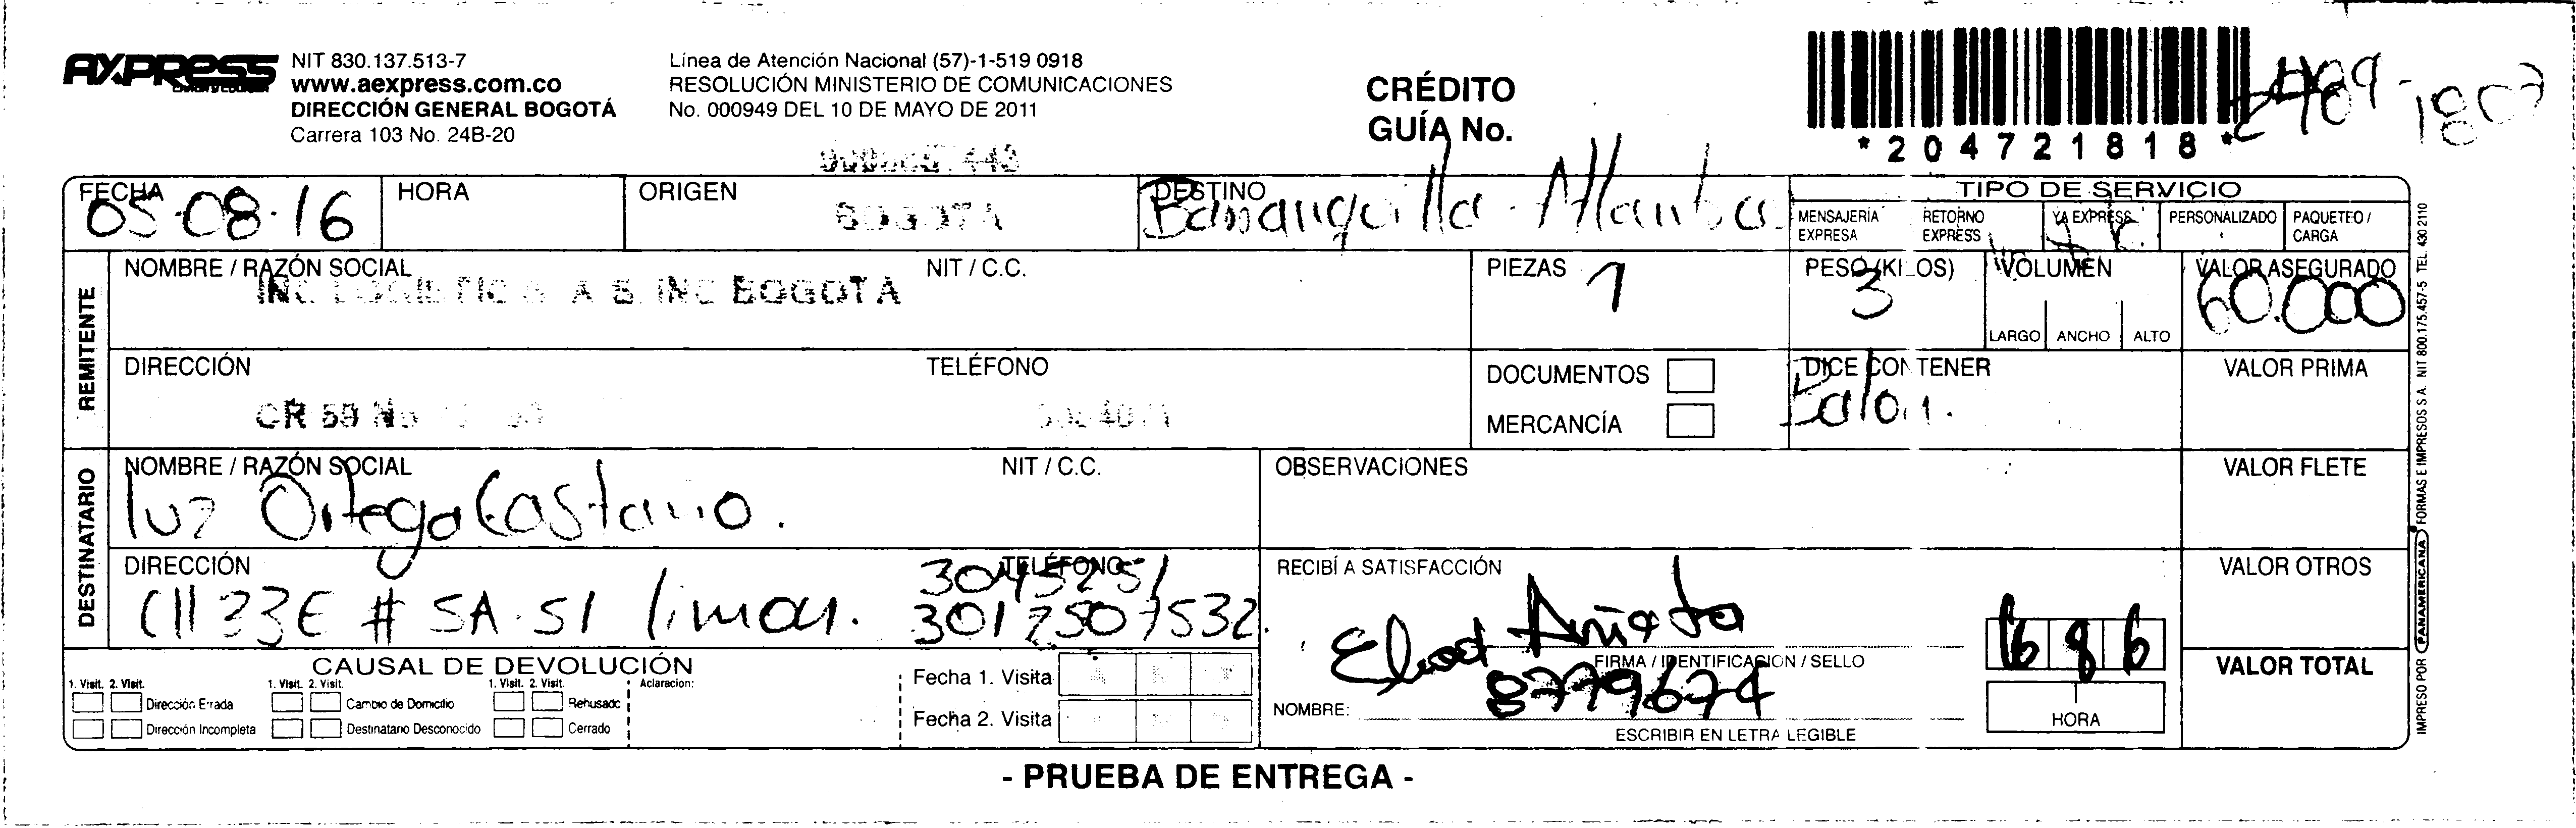 AXPRESS
NIT 830.137.513-7
www.aexpress.com.co
DIRECCIÓN GENERAL BOGOTÁ
Carrera 103 No. 24B-20
Línea de Atención Nacional (57)-1-519 0918
RESOLUCIÓN MINISTERIO DE COMUNICACIONES
No. 000949 DEL 10 DE MAYO DE 2011
CRÉDITO
GUÍA No.
*204721818*
1807
FECHA 05-08-16
HORA
ORIGEN BOGOTA
DESTINO Barranquilla - Atlantico
TIPO DE SERVICIO
MENSAJERÍA EXPRESA
RETORNO EXPRESS
YA EXPRESS
PERSONALIZADO
PAQUETEO / CARGA
REMITENTE
NOMBRE / RAZÓN SOCIAL
INC LOGISTIC S A S. INC BOGOTA
NIT / C.C.
PIEZAS 1
PESO (KILOS) 3
VOLUMEN
LARGO ANCHO ALTO
VALOR ASEGURADO
60.000
DIRECCIÓN
CR 59 No
TELÉFONO
DOCUMENTOS
MERCANCÍA
DICE CONTENER
Balon.
VALOR PRIMA
DESTINATARIO
NOMBRE / RAZÓN SOCIAL
luz Ortega Castano.
NIT / C.C.
OBSERVACIONES
VALOR FLETE
DIRECCIÓN
Cll 33E # 5A-51 limon.
TELÉFONO
3045251
3017507532.
RECIBÍ A SATISFACCIÓN
VALOR OTROS
FIRMA / IDENTIFICACION / SELLO
8779674
NOMBRE:
ESCRIBIR EN LETRA LEGIBLE
16 8 6
HORA
VALOR TOTAL
CAUSAL DE DEVOLUCIÓN
1. Visit. 2. Visit.
1. Visit. 2. Visit.
1. Visit. 2. Visit.
Aclaracion:
Dirección Errada
Cambio de Domicilio
Rehusado
Dirección Incompleta
Destinatario Desconocido
Cerrado
Fecha 1. Visita
Fecha 2. Visita
- PRUEBA DE ENTREGA -
IMPRESO POR PANAMERICANA FORMAS E IMPRESOS S.A. NIT 800.175.457-5 TEL. 430 2110